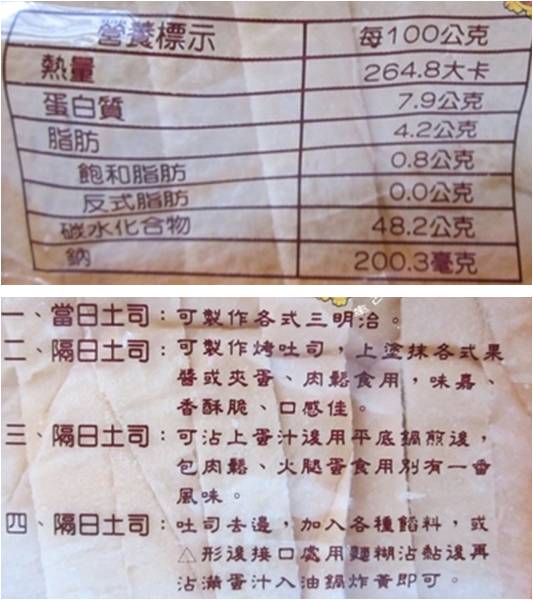 營養標示 每100公克
熱量 264.8大卡
蛋白質 7.9公克
脂肪 4.2公克
飽和脂肪 0.8公克
反式脂肪 0.0公克
碳水化合物 48.2公克
鈉 200.3毫克
一、當日土司：可製作各式三明治。
二、隔日土司：可製作烤吐司，上塗抹各式果
醬或夾蛋、肉鬆食用，味嘉、
香酥脆、口感佳。
三、隔日土司：可沾上蛋汁後用平底鍋煎後，
包肉鬆、火腿蛋食用別有一番
風味。
四、隔日土司：吐司去邊，加入各種餡料，或
△形後接口處用麵糊沾黏後再
沾滿蛋汁入油鍋炸黃即可。